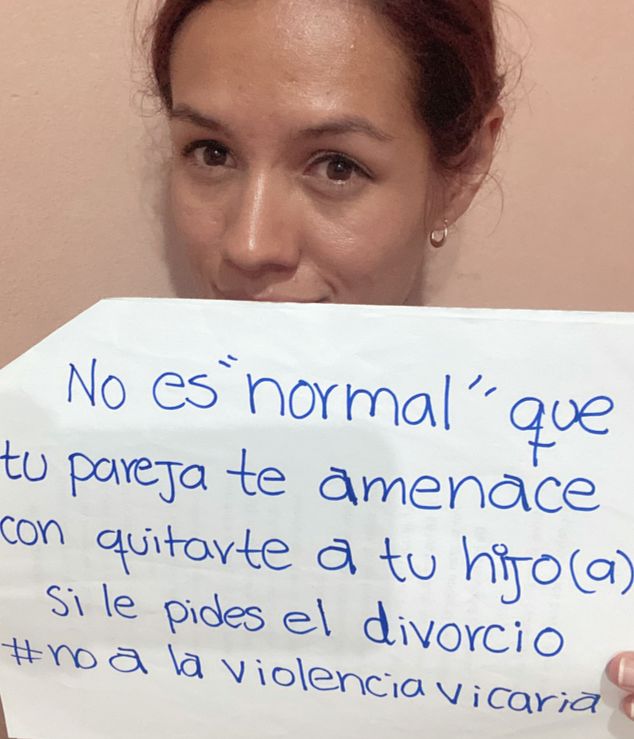 No es "normal" que
tu pareja te amenace
con quitarte a tu hijo(a)
si le pides el divorcio
#no a la violencia vicaria